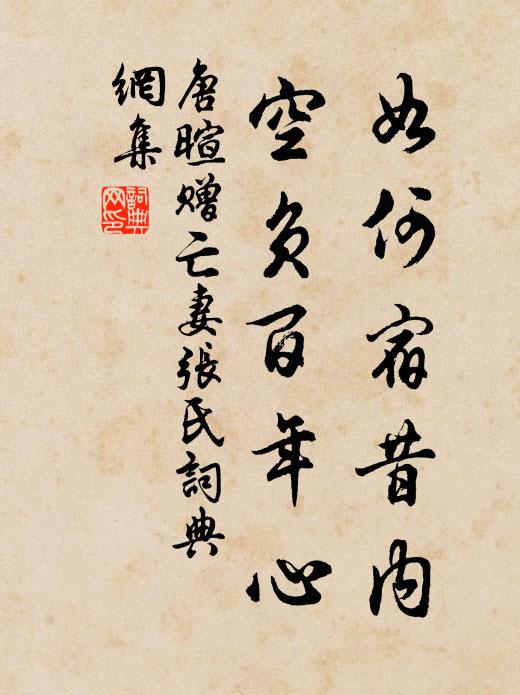 如何宿昔内
空负百年心
唐暄赠亡妻張氏詞典
網集
詞典
网印